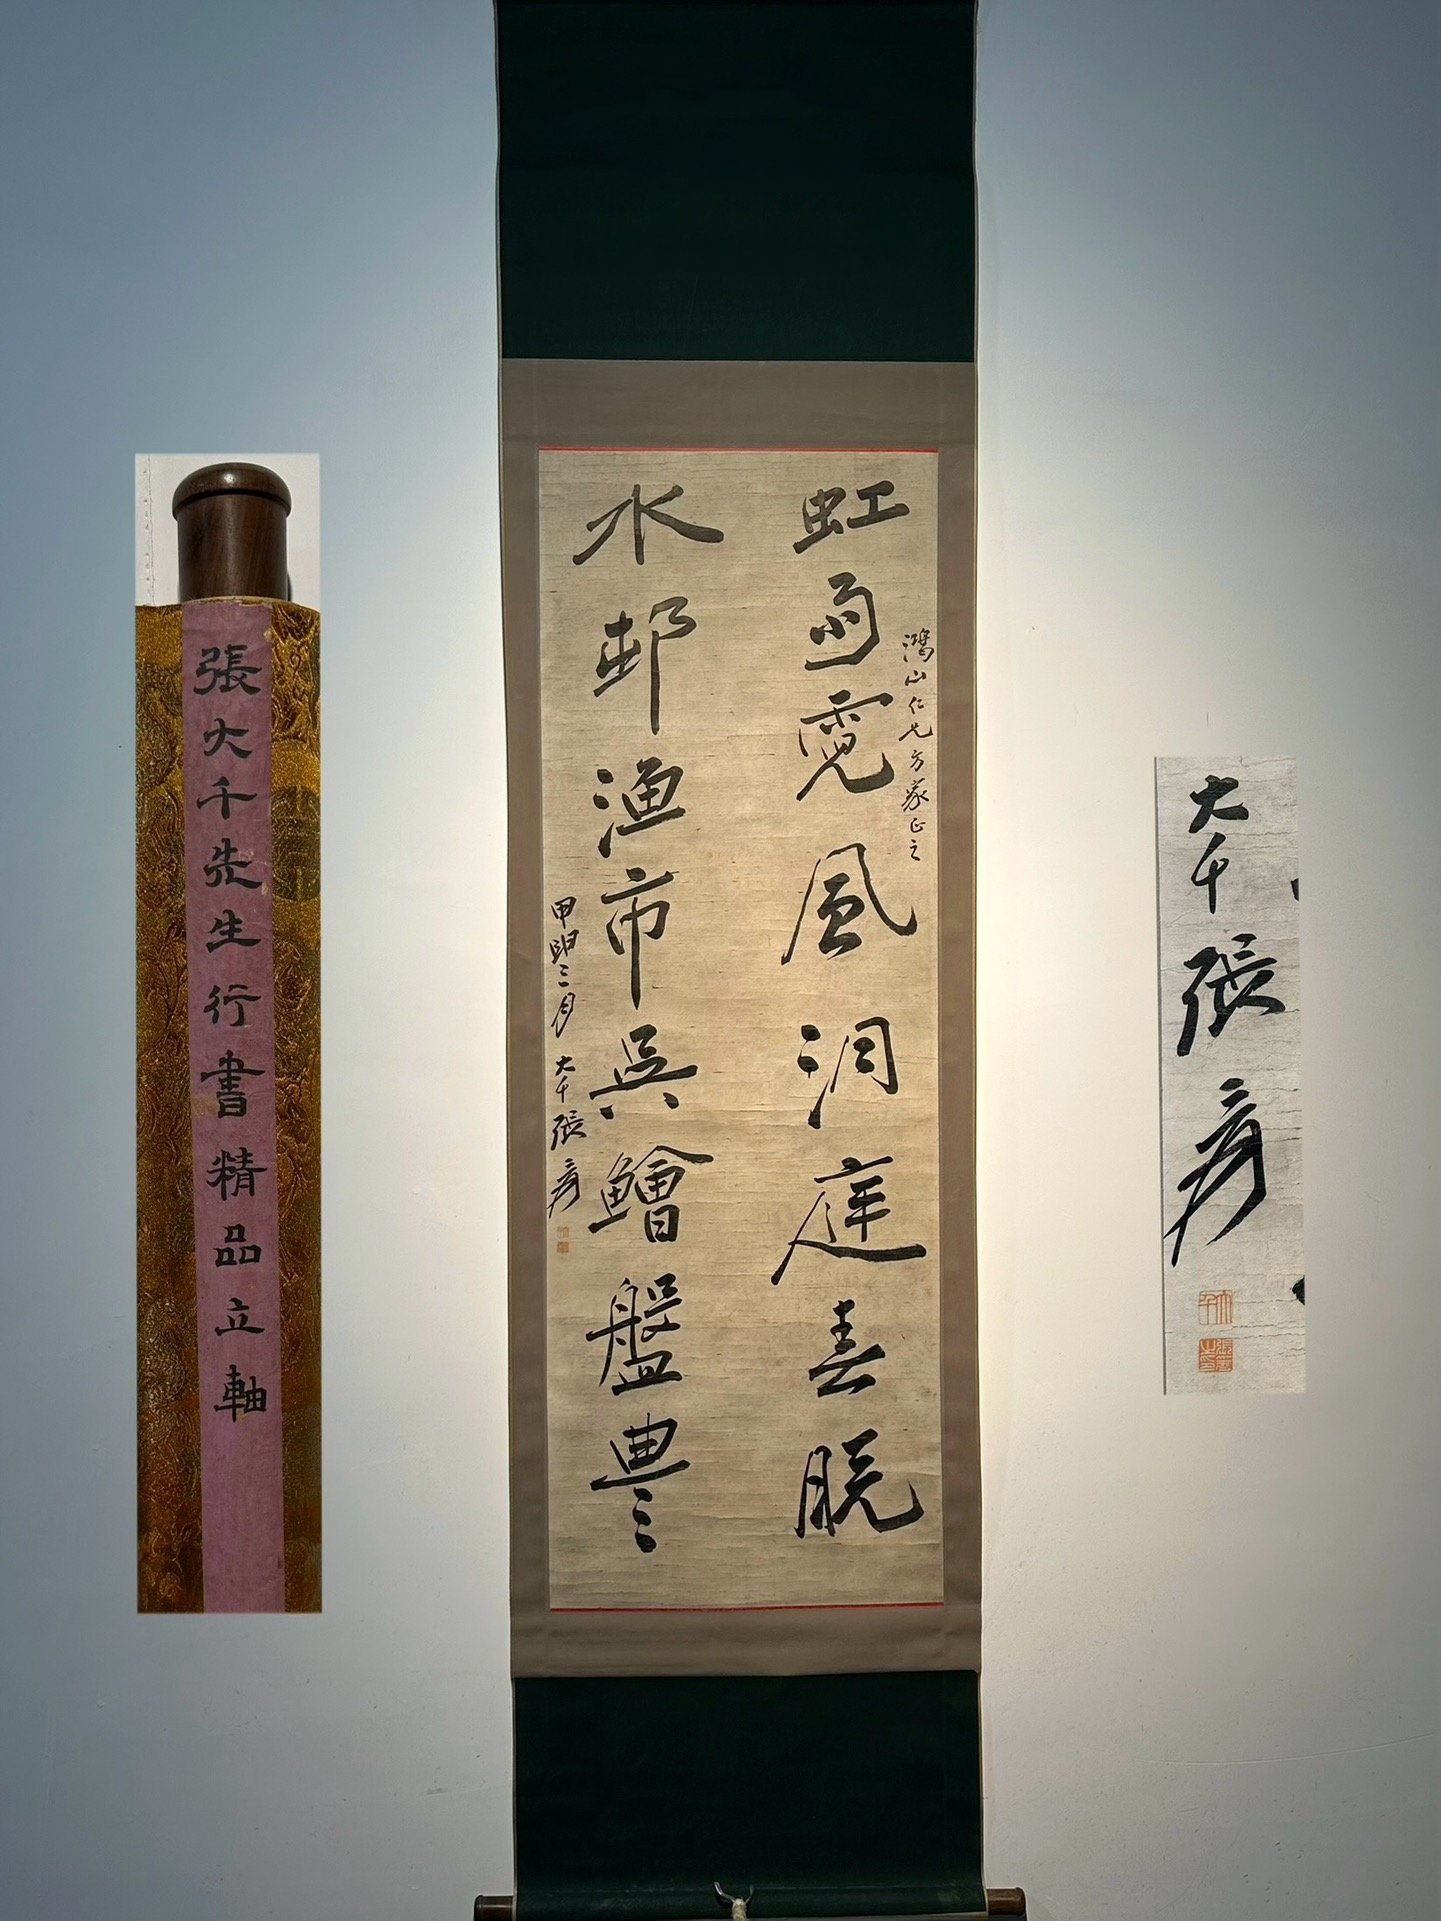 張大千先生行書精品立軸
鴻山仁兄方家正之
虹雨霓風洞庭春晚
水邨漁市吳鱠盤豐
甲申三月大千張爰
大千張爰
大千
張爰之印